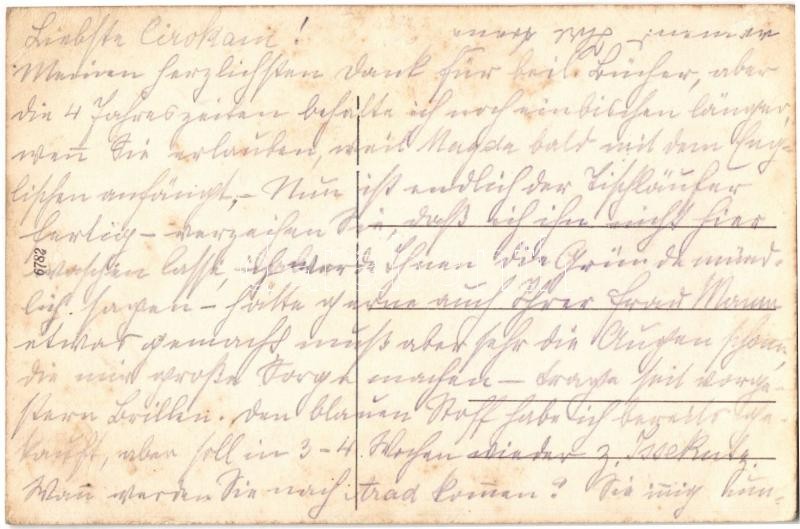 Liebste Cirokam!
Meinen herzlichsten Dank für beil. Bücher, aber
die 4 Jahreszeiten behalte ich noch ein bischen länger,
weñ Sie erlauben, weil Magda bald mit dem Eng-
lischen anfängt, - Nun ist endlich der Tischläufer
fertig - verzeihen Sie, daß ich ihn nicht hier
waschen lasse, ich werde Ihnen die Gründe münd-
lich sagen - hätte gerne auch Ihrer Frau Mama
etwas gemacht muß aber sehr die Augen schonen,
die mir große Sorge machen - trage seit vorge-
stern Brillen. Den blauen Stoff habe ich bereits ge-
kauft, aber soll in 3-4 Wochen wieder z.
Wañ werden Sie nach Arad kom̃en? Sie
6782